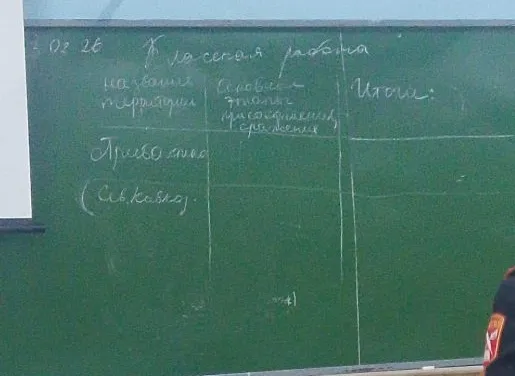 02 26 Классная работа
название
территории
Основные
этапы
присоединения,
сражения
Итоги:
Прибалтика